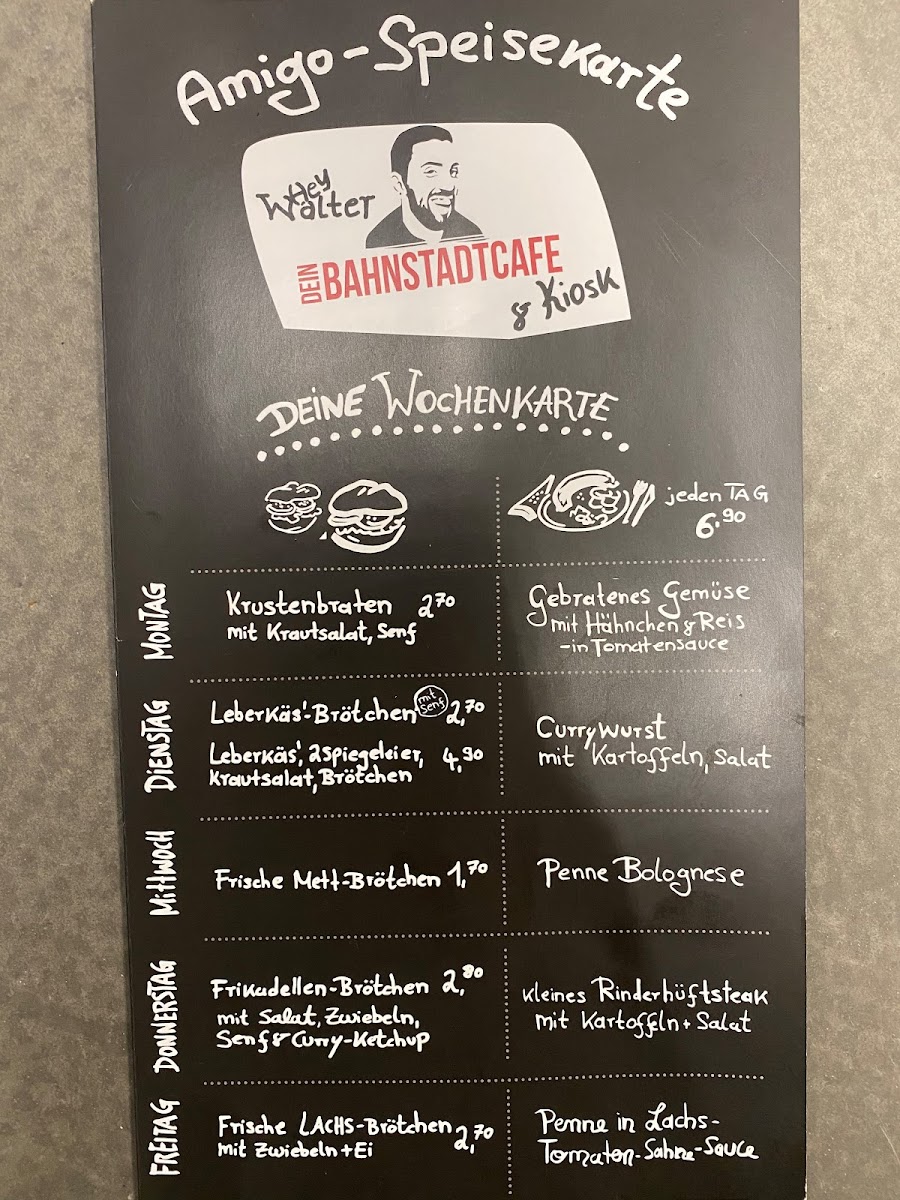 Amigo-Speisekarte
Hey
Walter
DEIN BAHNSTADTCAFE
& Kiosk
DEINE WOCHENKARTE
jeden TAG
6,90
MONTAG
Krustenbraten 2,70
mit Krautsalat, Senf
Gebratenes Gemüse
mit Hähnchen & Reis
-in Tomatensauce
DIENSTAG
Leberkäs'-Brötchen mit Senf 2,70
Leberkäs', 2 Spiegeleier, 4,90
Krautsalat, Brötchen
Currywurst
mit Kartoffeln, Salat
MITTWOCH
Frische Mett-Brötchen 1,70
Penne Bolognese
DONNERSTAG
Frikadellen-Brötchen 2,80
mit Salat, Zwiebeln,
Senf & Curry-Ketchup
kleines Rinderhüftsteak
mit Kartoffeln + Salat
FREITAG
Frische LACHS-Brötchen 2,70
mit Zwiebeln + Ei
Penne in Lachs-
Tomaten-Sahne-Sauce